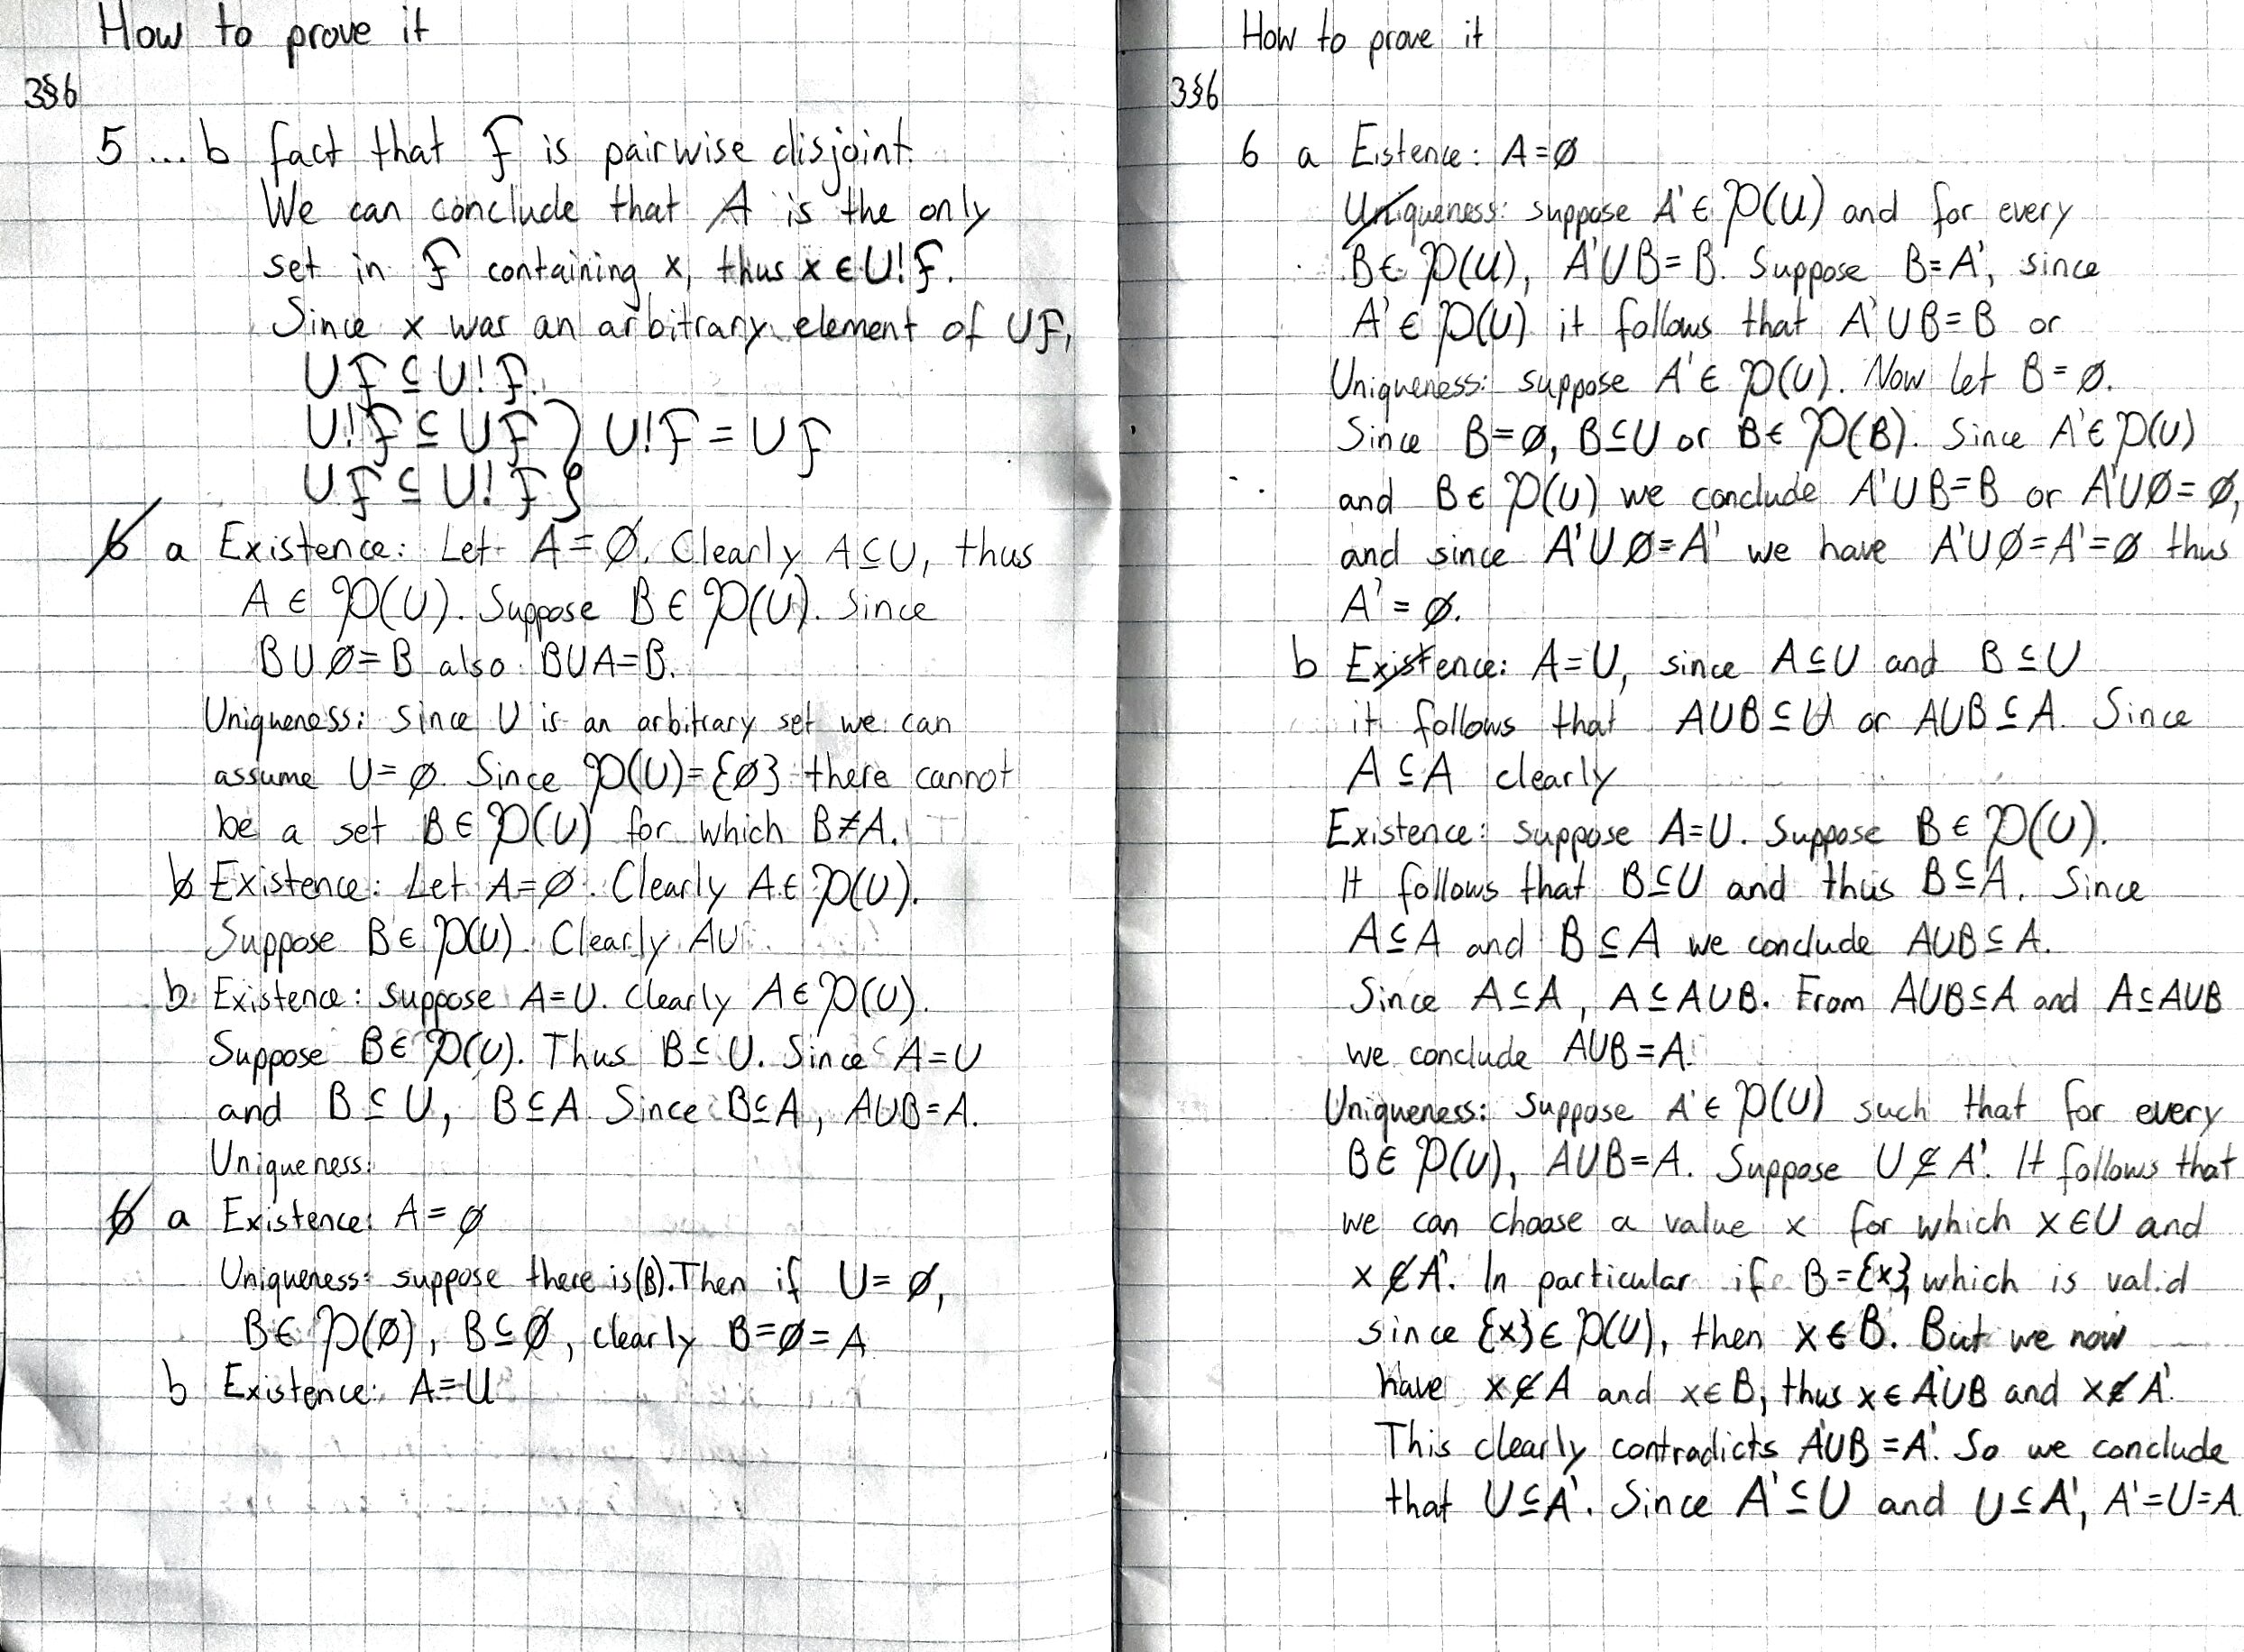 How to prove it
3§6
5 ... b fact that F is pairwise disjoint.
We can conclude that A is the only
set in F containing x, thus x ∈ U!F.
Since x was an arbitrary element of UF,
UF ⊆ U!F.
U!F ⊆ UF } U!F = UF
UF ⊆ U!F
6 a Existence: Let A = Ø. Clearly A⊆U, thus
A ∈ P(U). Suppose B ∈ P(U). Since
B U Ø = B also BUA=B.
Uniqueness: since U is an arbitrary set we can
assume U = Ø. Since P(U)={Ø} there cannot
be a set B ∈ P(U) for which B≠A.
b Existence: Let A=Ø. Clearly A ∈ P(U).
Suppose B ∈ P(U). Clearly AU
b Existence: suppose A=U. Clearly A ∈ P(U).
Suppose B ∈ P(U). Thus B ⊆ U. Since A = U
and B ⊆ U, B ⊆ A. Since B⊆A, AUB=A.
Uniqueness:
6 a Existence: A = Ø
Uniqueness: suppose there is (B). Then if U = Ø,
B ∈ P(Ø), B ⊆ Ø, clearly B=Ø=A
b Existence: A=U
How to prove it
3§6
6 a Eistence: A=Ø
Uniqueness: suppose A' ∈ P(U) and for every
B ∈ P(U), A'UB=B. Suppose B=A', since
A' ∈ P(U) it follows that A'UB=B or
Uniqueness: suppose A' ∈ P(U). Now let B = Ø.
Since B=Ø, B⊆U or B ∈ P(B). Since A' ∈ P(U)
and B ∈ P(U) we conclude A'UB=B or A'UØ=Ø,
and since A'UØ=A' we have A'UØ=A'=Ø thus
A' = Ø.
b Existence: A=U, since A⊆U and B⊆U
it follows that AUB⊆U or AUB⊆A. Since
A⊆A clearly
Existence: suppose A=U. Suppose B ∈ P(U).
It follows that B⊆U and thus B⊆A. Since
A⊆A and B⊆A we conclude AUB⊆A.
Since A⊆A, A⊆AUB. From AUB⊆A and A⊆AUB
we conclude AUB=A.
Uniqueness: suppose A' ∈ P(U) such that for every
B ∈ P(U), AUB=A. Suppose U ⊈ A'. It follows that
we can choose a value x for which x∈U and
x ∉ A'. In particular if B={x}, which is valid
since {x} ∈ P(U), then x ∈ B. But we now
have x∉A and x∈B, thus x ∈ A'UB and x∉A'.
This clearly contradicts A'UB=A'. So we conclude
that U⊆A'. Since A'⊆U and U⊆A', A'=U=A.